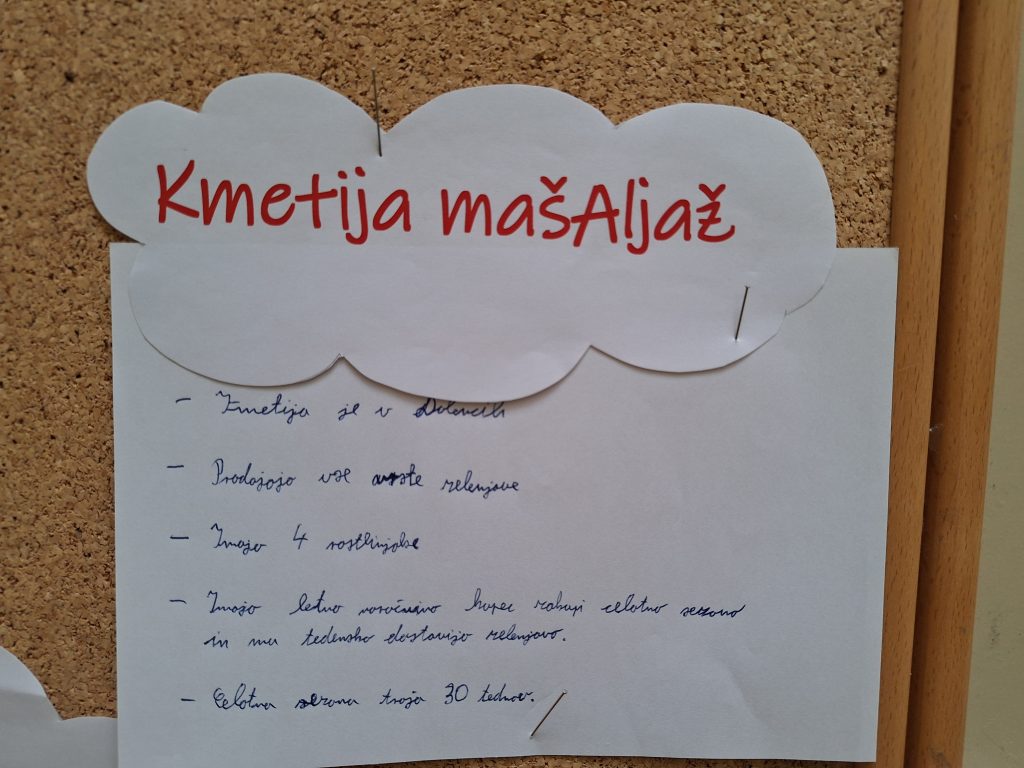 Kmetija mašAljaž
- Kmetija je v Dolencih
- Prodajajo vse vrste zelenjave
- Imajo 4 rastlinjake
- Imajo letno naročnino kupec zakupi celotno sezono
in mu tedensko dostavijo zelenjavo.
- Celotna sezona traja 30 tednov.